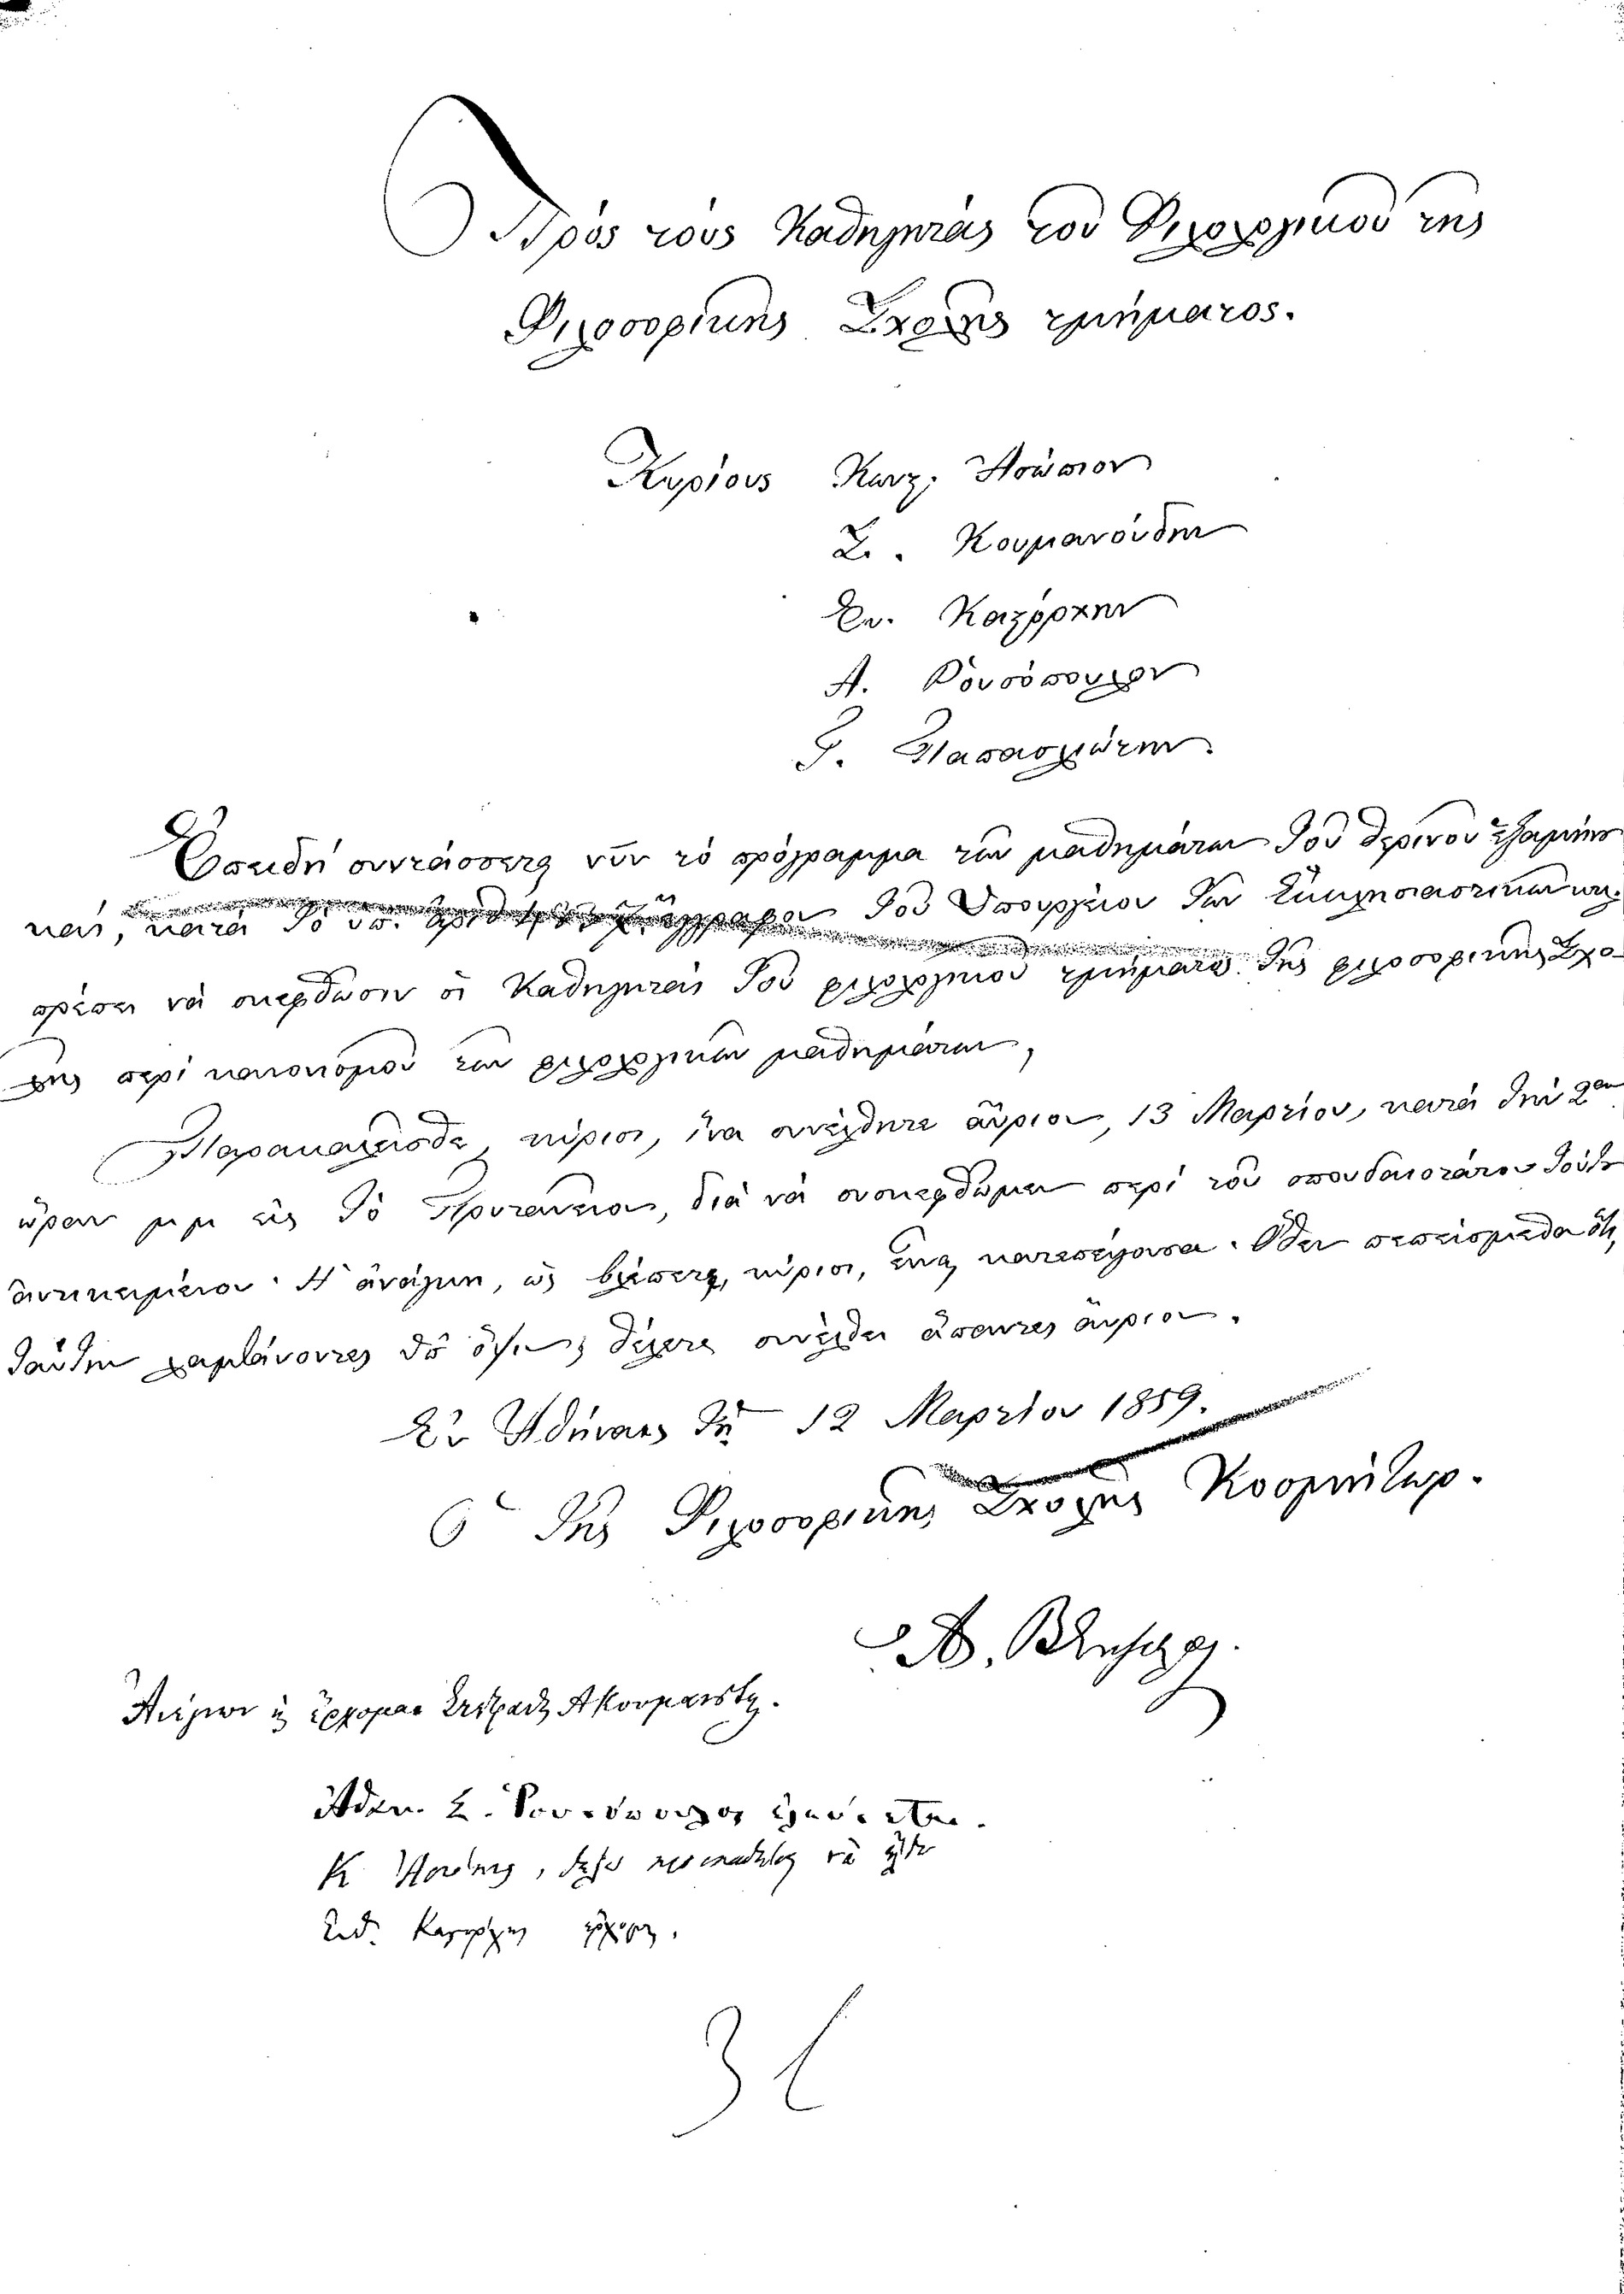 Πρὸς τοὺς Καθηγητὰς τοῦ Φιλολογικοῦ τῆς
Φιλοσοφικῆς Σχολῆς τμήματος.
Κυρίους Κωνς. Ἀσώπιον
Σ. Κουμανούδην
Εὐ. Καστόρχην
Α. Ῥουσόπουλον
Γ. Παπασλιώτην.
Ἐπειδὴ συντάσσεται νῦν τὸ πρόγραμμα τῶν μαθημάτων τοῦ θερινοῦ ἑξαμήνου
καὶ, κατὰ τὸ ὑπ. ἀριθ. ἔγγραφον τοῦ Ὑπουργείου τῶν Ἐκκλησιαστικῶν
πρέπει νὰ σκεφθῶσιν οἱ Καθηγηταὶ τοῦ φιλολογικοῦ τμήματος τῆς φιλοσοφικῆς Σχο-
λῆς περὶ κανονισμοῦ τῶν φιλολογικῶν μαθημάτων,
Παρακαλεῖσθε, κύριοι, ἵνα συνέλθητε αὔριον, 13 Μαρτίου, κατὰ τὴν 2αν
ὥραν μ μ εἰς τὸ Πρυτανεῖον, διὰ νὰ συσκεφθῶμεν περὶ τοῦ σπουδαιοτάτου τούτου
ἀντικειμένου. Ἡ ἀνάγκη, ὡς βλέπετε, κύριοι, εἶναι κατεπείγουσα. Ὅθεν πεπείσμεθα ὅτι,
ταύτην λαμβάνοντες ὑπ' ὄψιν, θέλετε συνέλθει ἅπαντες αὔριον.
Ἐν Ἀθήναις τῇ 12 Μαρτίου 1859.
Ὁ τῆς Φιλοσοφικῆς Σχολῆς Κοσμήτωρ.
Ἀνέγνων καὶ ἔρχομαι Στέφανος Α Κουμανούδης.
Ἀθαν. Σ. Ῥουσόπουλος
Κ Ἀσώπιος, νὰ ἔλθω
Εὐθ. Καστόρχης ἔρχομαι.
36